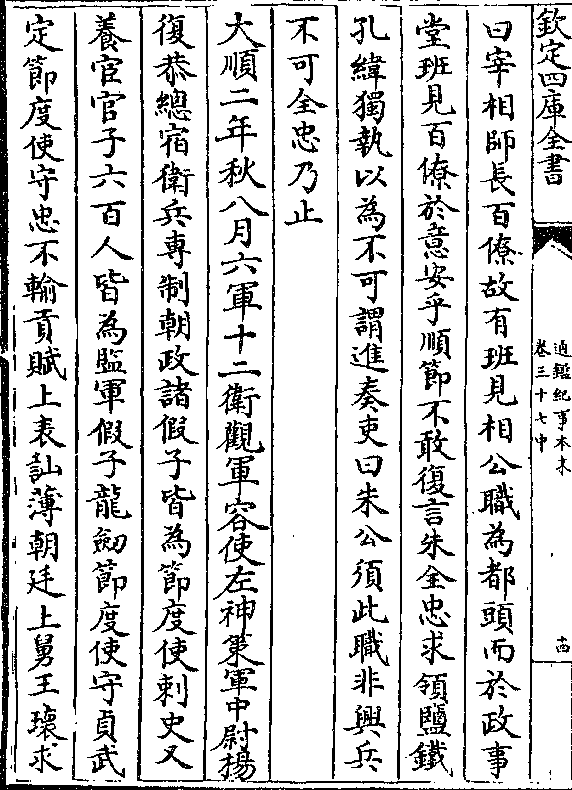 欽定四庫全書
通鑑紀事本末
卷三十七中
十四
曰宰相師長百僚故有班見相公職為都頭而於政事
堂班見百僚於意安乎順節不敢復言朱全忠求領鹽鐵
孔緯獨執以為不可謂進奏吏曰朱公須此職非興兵
不可全忠乃止
大順二年秋八月六軍十二衛觀軍容使左神策軍中尉楊
復恭總宿衛兵專制朝政諸假子皆為節度使刺史又
養宦官子六百人皆為監軍假子龍劒節度使守貞武
定節度使守忠不輸貢賦上表訕薄朝廷上舅王瓌求